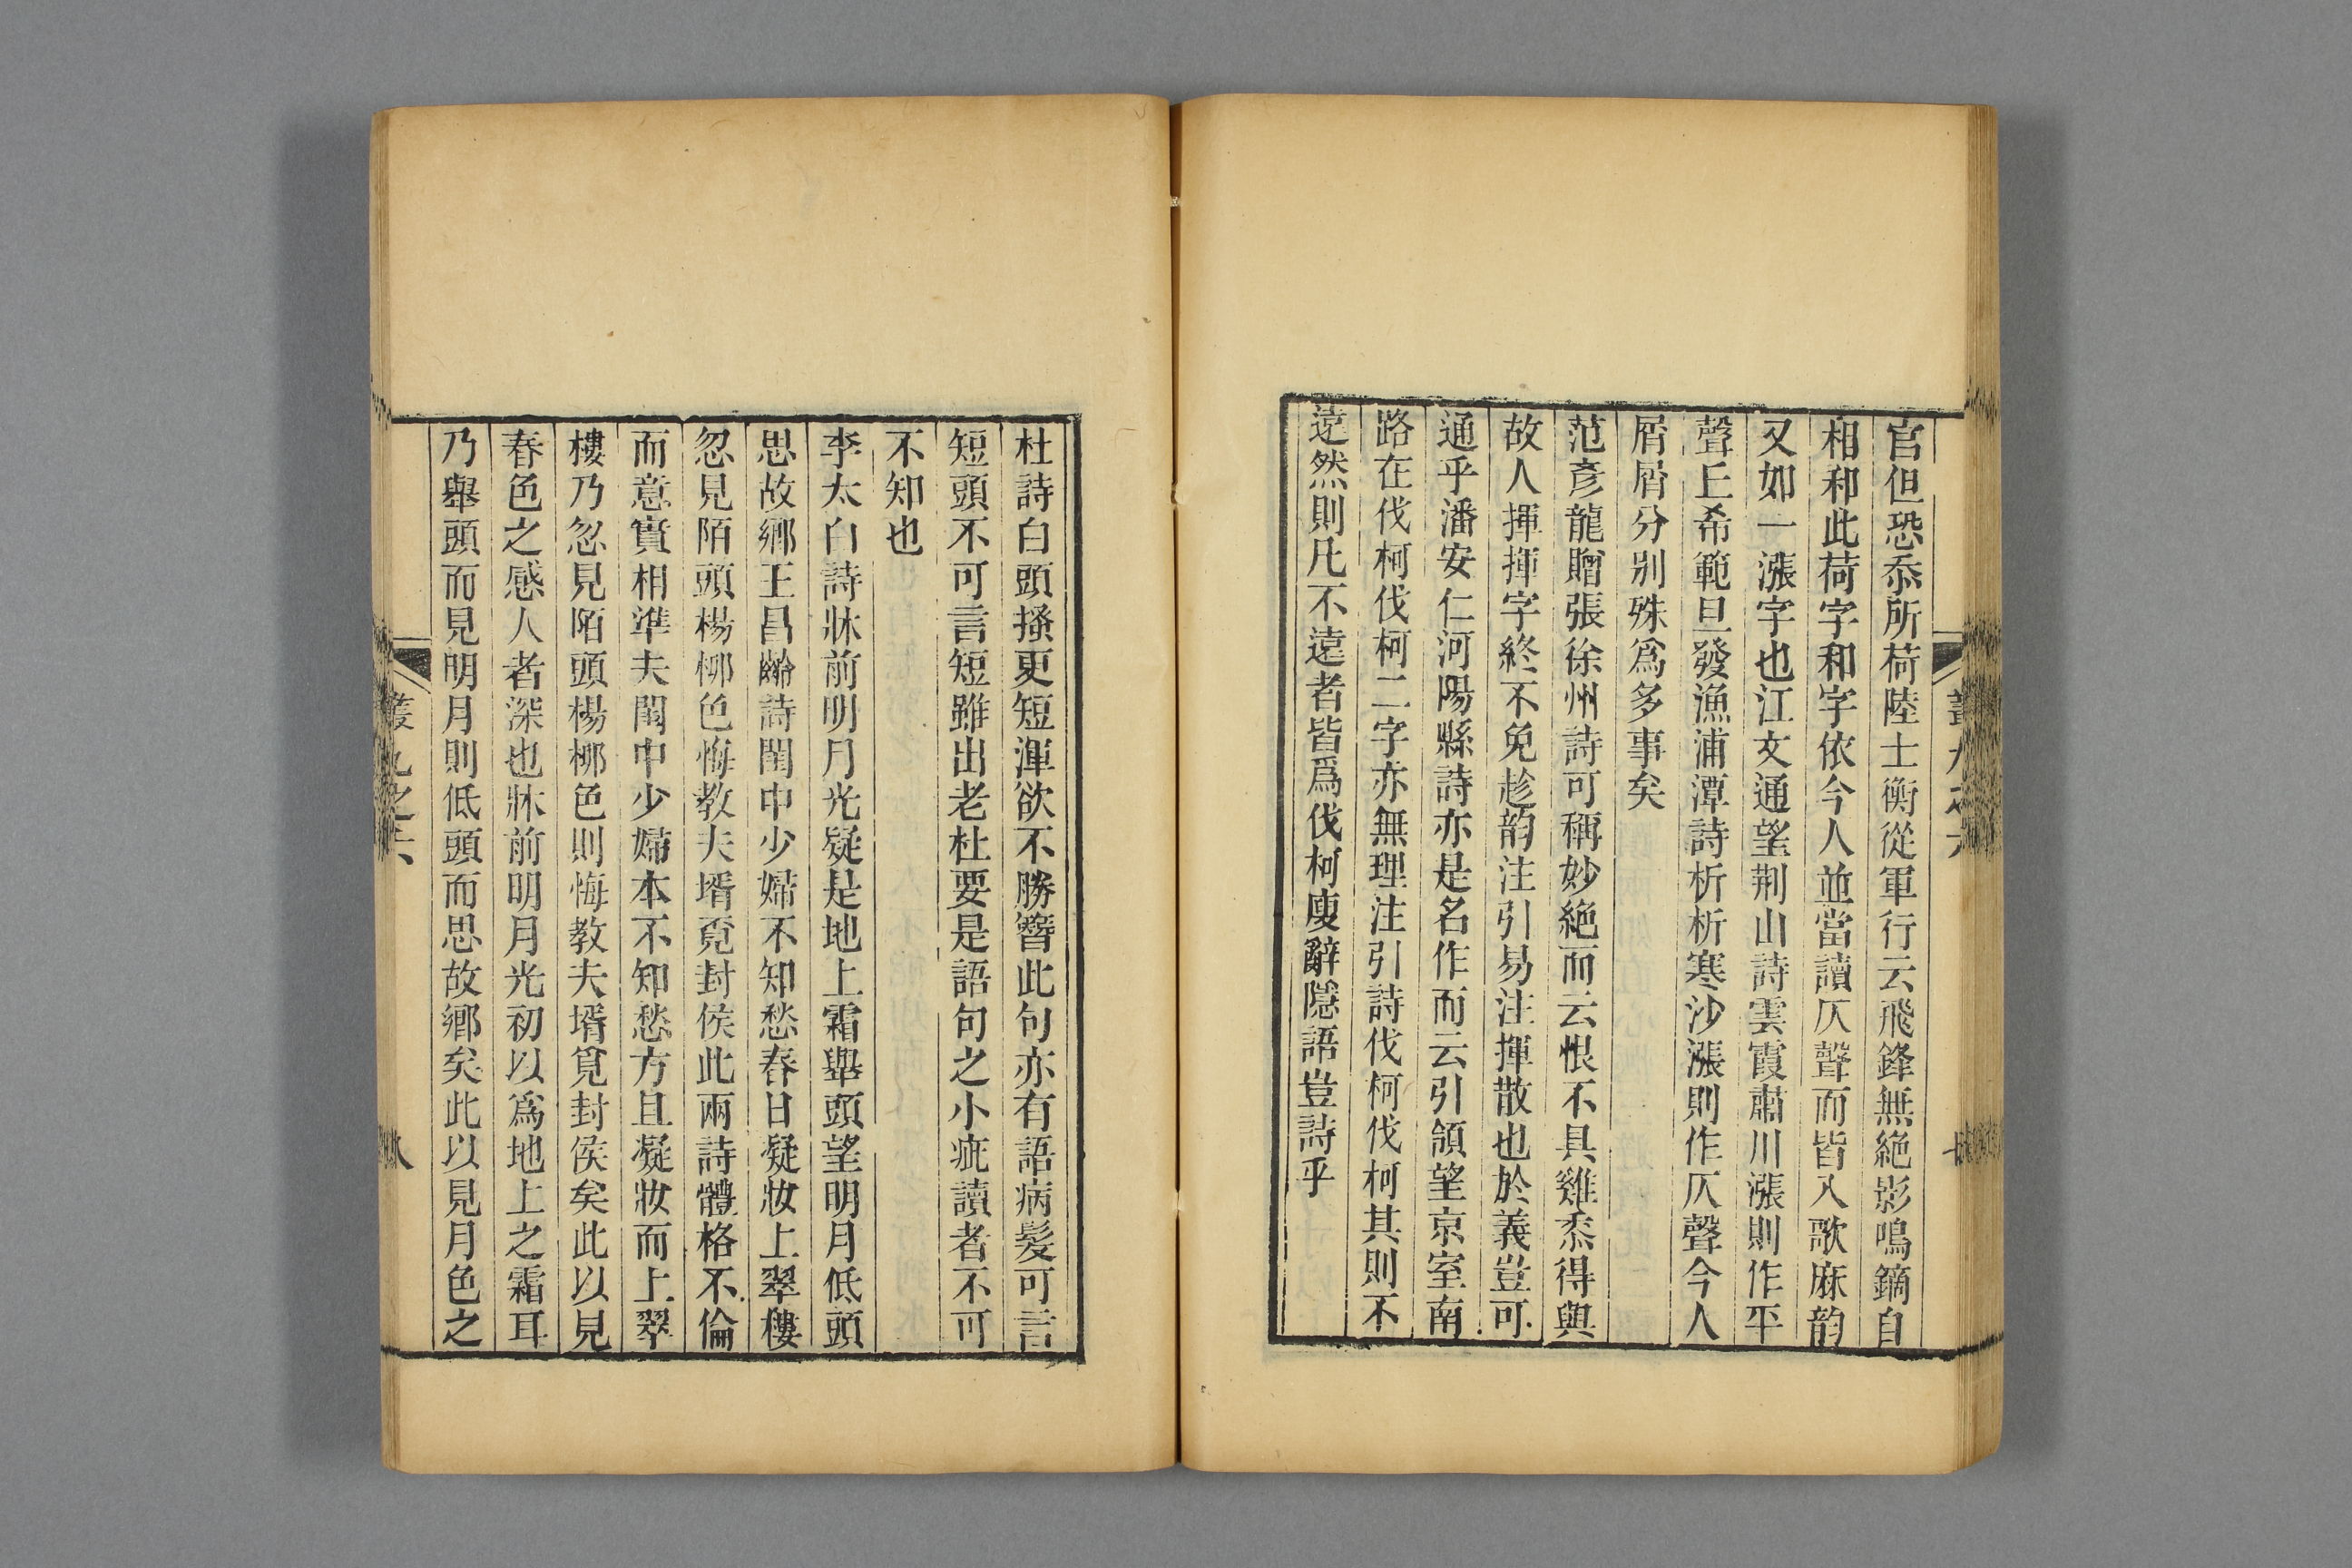 官但恐忝所荷陸士衡從軍行云飛鋒無絶影鳴鏑自
相和此荷字和字依今人並當讀仄聲而皆入歌麻韵
又如一漲字也江文通望荆山詩雲霞肅川漲則作平
聲丘希範旦發漁浦潭詩析析寒沙漲則作仄聲今人
屑屑分别殊爲多事矣
范彥龍贈張徐州詩可稱妙絶而云恨不具雞黍得與
故人揮揮字終不免趁韵注引易注揮散也於義豈可
通乎潘安仁河陽縣詩亦是名作而云引領望京室南
路在伐柯伐柯二字亦無理注引詩伐柯伐柯其則不
遠然則凡不遠者皆爲伐柯廋辭隱語豈詩乎
杜詩白頭搔更短渾欲不勝簪此句亦有語病髮可言
短頭不可言短雖出老杜要是語句之小疵讀者不可
不知也
李太白詩牀前明月光疑是地上霜舉頭望明月低頭
思故鄉王昌齡詩閨中少婦不知愁春日凝妝上翠樓
忽見陌頭楊栁色悔教夫壻覔封侯此兩詩體格不倫
而意實相準夫閨中少婦本不知愁方且凝妝而上翠
樓乃忽見陌頭楊栁色則悔教夫壻覓封侯矣此以見
春色之感人者深也牀前明月光初以爲地上之霜耳
乃舉頭而見明月則低頭而思故鄉矣此以見月色之
叢九之六
八